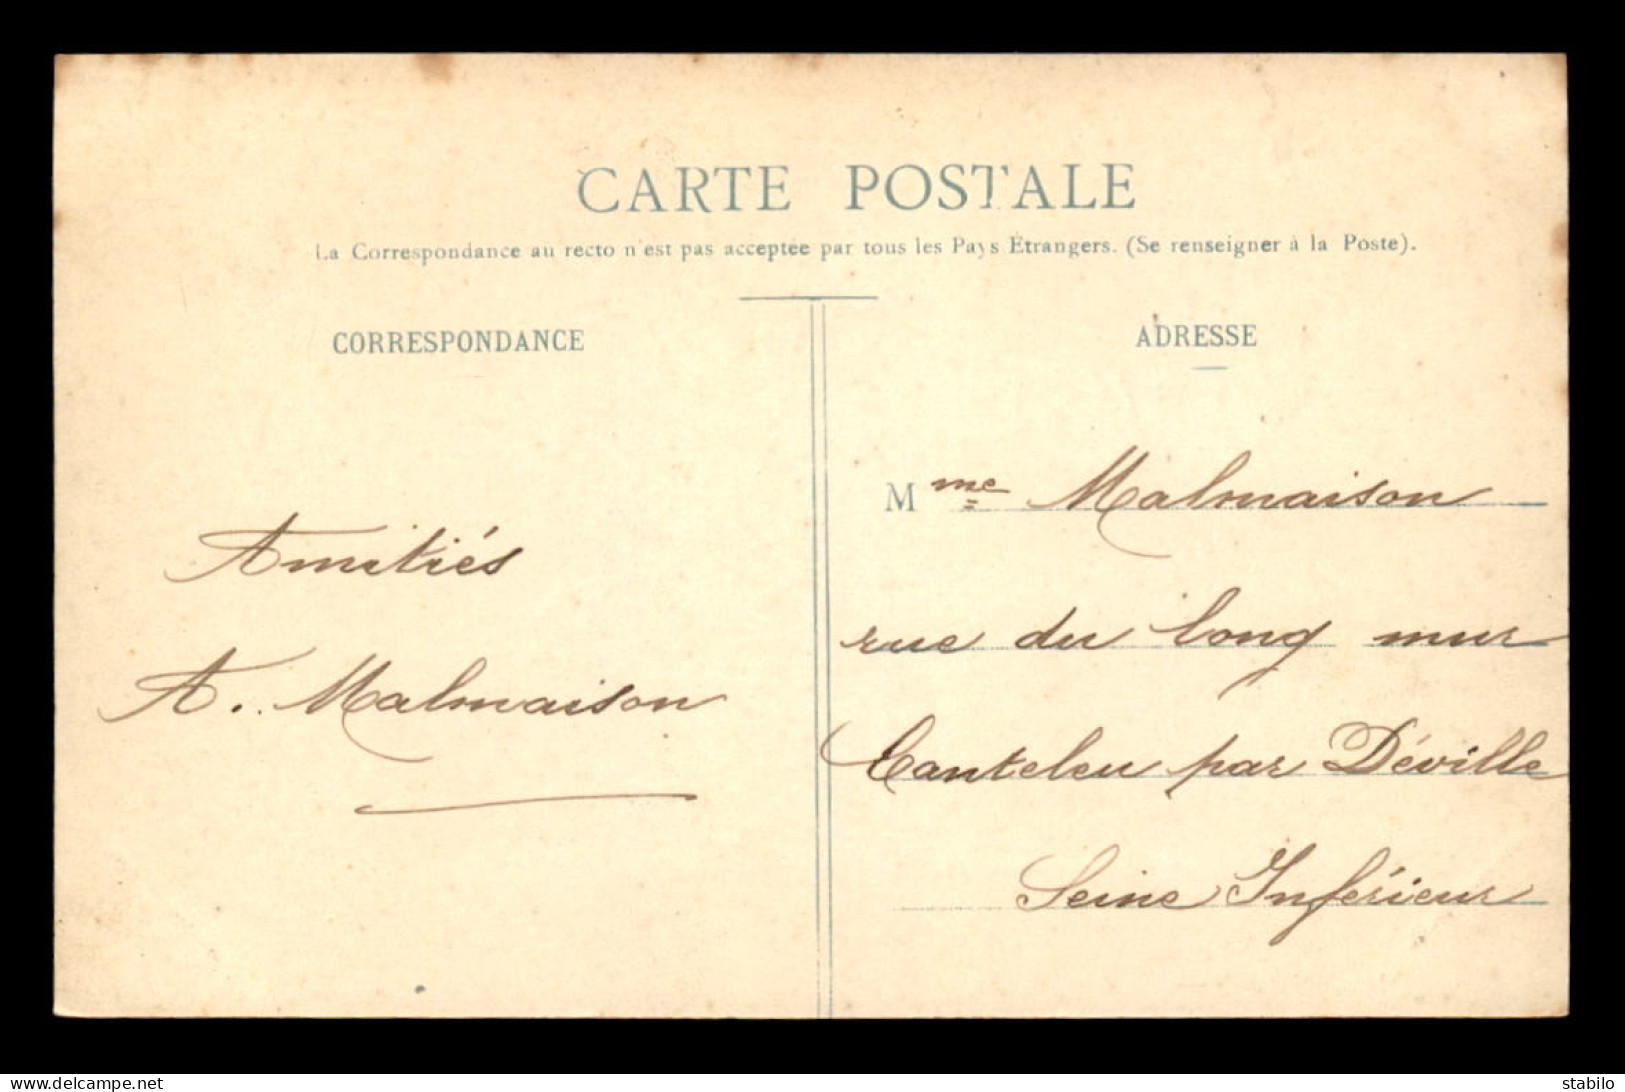 CARTE POSTALE
La Correspondance au recto n'est pas acceptée par tous les Pays Étrangers. (Se renseigner à la Poste).
CORRESPONDANCE
Amitiés
A. Malmaison
ADRESSE
Mme Malmaison
rue du long mur
Canteleu par Déville
Seine Inférieur
delcampe.net
stabilo